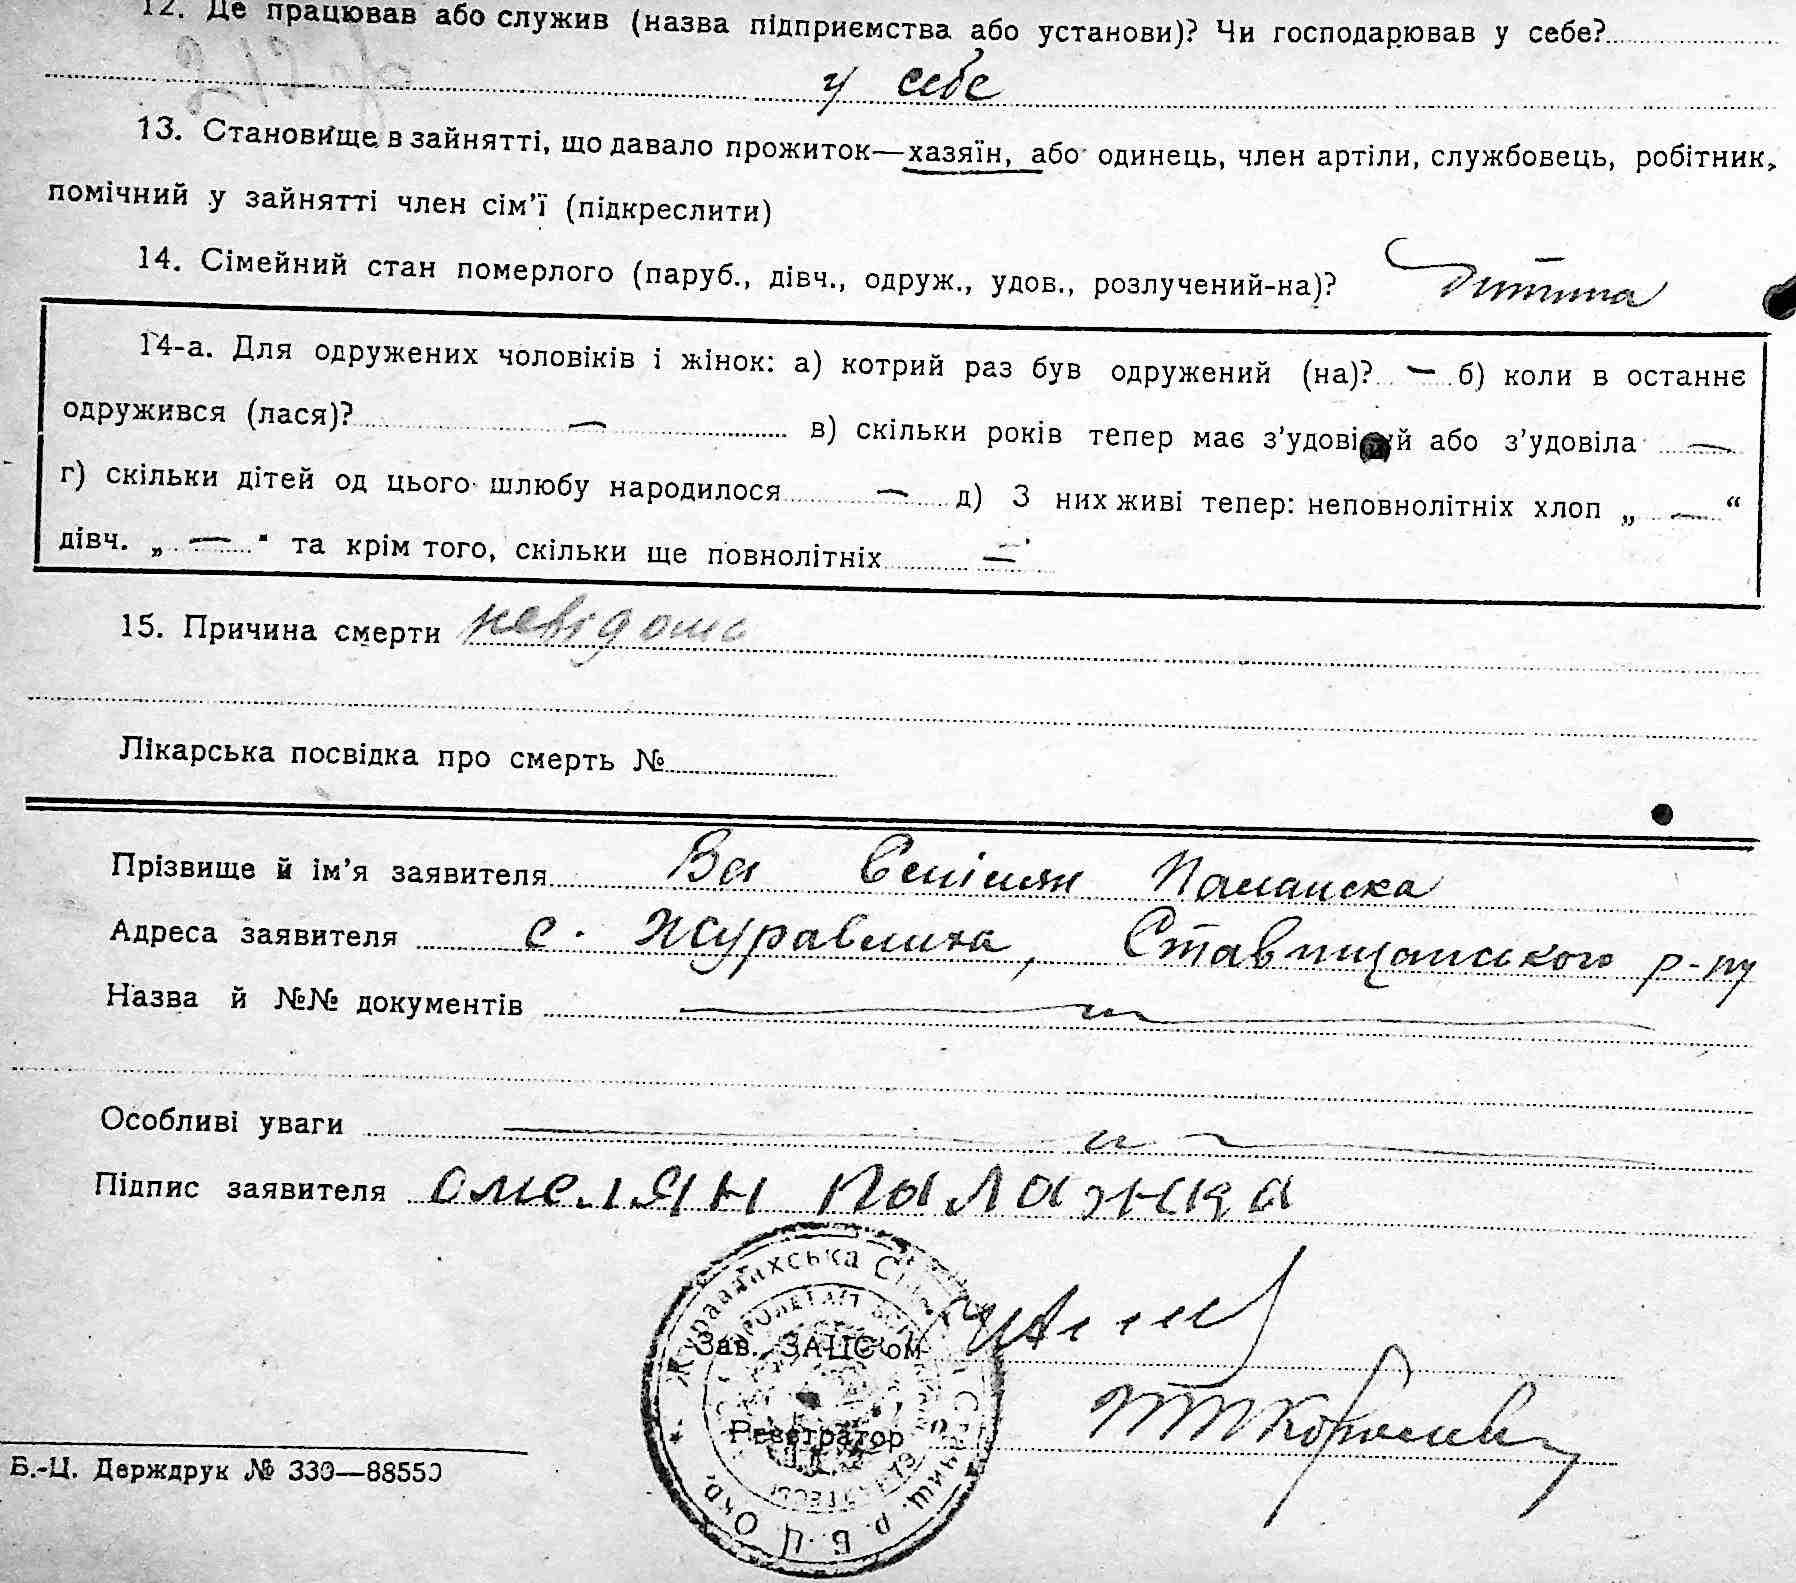 12. Де працював або служив (назва підприємства або установи)? Чи господарював у себе?
у себе
13. Становище в зайнятті, що давало прожиток—хазяїн, або одинець, член артіли, службовець, робітник,
помічний у зайнятті член сім'ї (підкреслити)
14. Сімейний стан померлого (паруб., дівч., одруж., удов., розлучений-на)? дитина
14-а. Для одружених чоловіків і жінок: а) котрий раз був одружений (на)? — б) коли в останнє
одружився (лася)? — в) скільки років тепер має з'удовілий або з'удовіла —
г) скільки дітей од цього шлюбу народилося — д) З них живі тепер: неповнолітніх хлоп „ — “
дівч. „ — “ та крім того, скільки ще повнолітніх —
15. Причина смерти невідома
Лікарська посвідка про смерть №
Прізвище й ім'я заявителя
Адреса заявителя с. Журавлиха, Ставищанського р-ну
Назва й №№ документів —
Особливі уваги —
Підпис заявителя омелян палажка
Журавлихська Сіл
Зав. ЗАЦС'ом
Реєстратор
Б.-Ц. Окр.
Б.-Ц. Держдрук № 330—88550